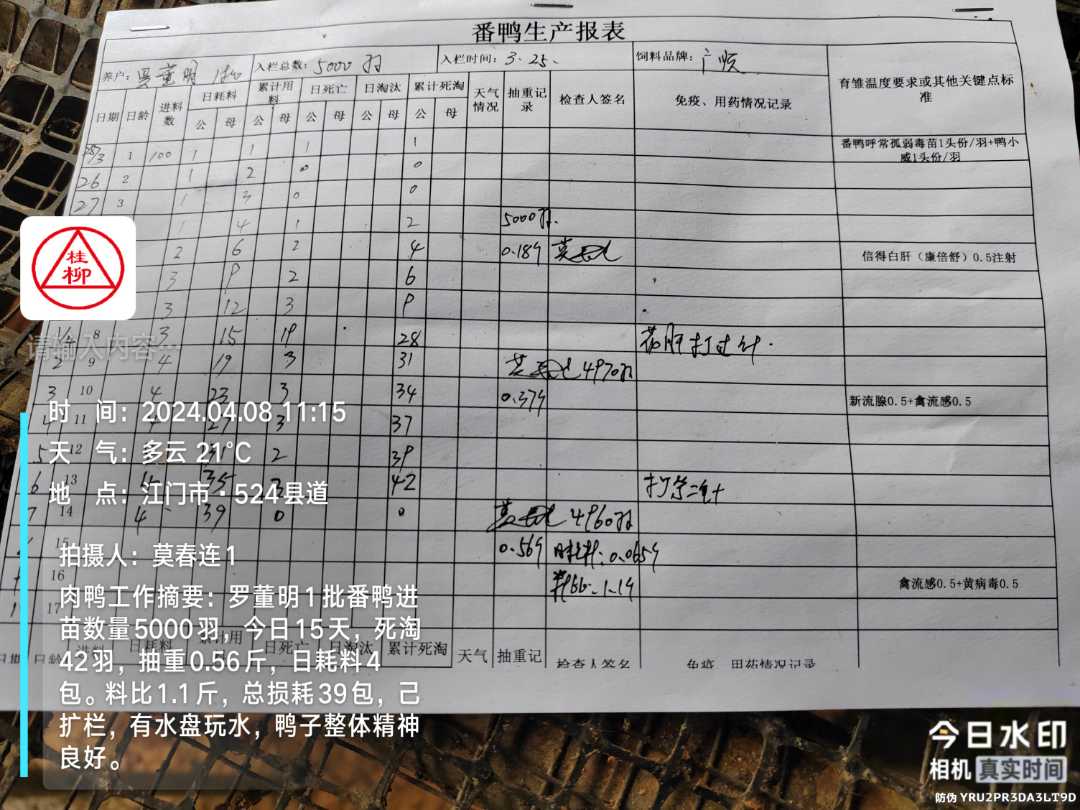 番鸭生产报表
养户: 罗董明 1批 入栏总数: 5000羽 入栏时间: 3.25. 饲料品牌: 广顺 育雏温度要求或其他关键点标准
日期 日龄 进料数 日耗料 累计用料 日死亡 日淘汰 累计死淘 天气情况 抽重记录 检查人签名 免疫、用药情况记录
公 母 公 母 公 母 公 母 公 母
25/3 1 100 1 1 1 1 番鸭呼常孤弱毒苗1头份/羽+鸭小威1头份/羽
26 2 1 2 0 0
27 3 1 3 0 0
1 4 1 2 5000羽.
2 6 2 4 0.189 信得白肝（康倍舒）0.5注射
3 2 6
3 12 3
8 3 15 19 28 打过针.
2 9 4 19 3 31 4970羽
3 10 4 23 3 34 0.379 新流腺0.5+禽流感0.5
4 11 27 3 37
5 12 2 39
6 13 35 42 打第二针
7 14 4 39 0 0 4960羽
15 0.569 日耗料: 0.0659
16 禽流感0.5+黄病毒0.5
17
日期 日龄 日耗料 日死亡 日淘汰 累计死淘 天气 抽重记 检查人签名 免疫、用药情况记录
桂
柳
请输入内容...
时 间: 2024.04.08 11:15
天 气: 多云 21℃
地 点: 江门市·524县道
拍摄人: 莫春连1
肉鸭工作摘要: 罗董明1批番鸭进
苗数量5000羽，今日15天，死淘
42羽，抽重0.56斤，日耗料4
包。料比1.1斤，总损耗39包，己
扩栏，有水盘玩水，鸭子整体精神
良好。
今日水印
相机 真实时间
防伪 YRU2PR3DA3LT9D